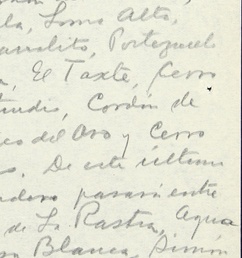 la, Loma Alta,
Portezuelo
, El Taxte, Cerro
, Cordón de
del Oro y Cerro
s. De este último
pasará entre
de La Rastra, Agua
Blanca, Simón